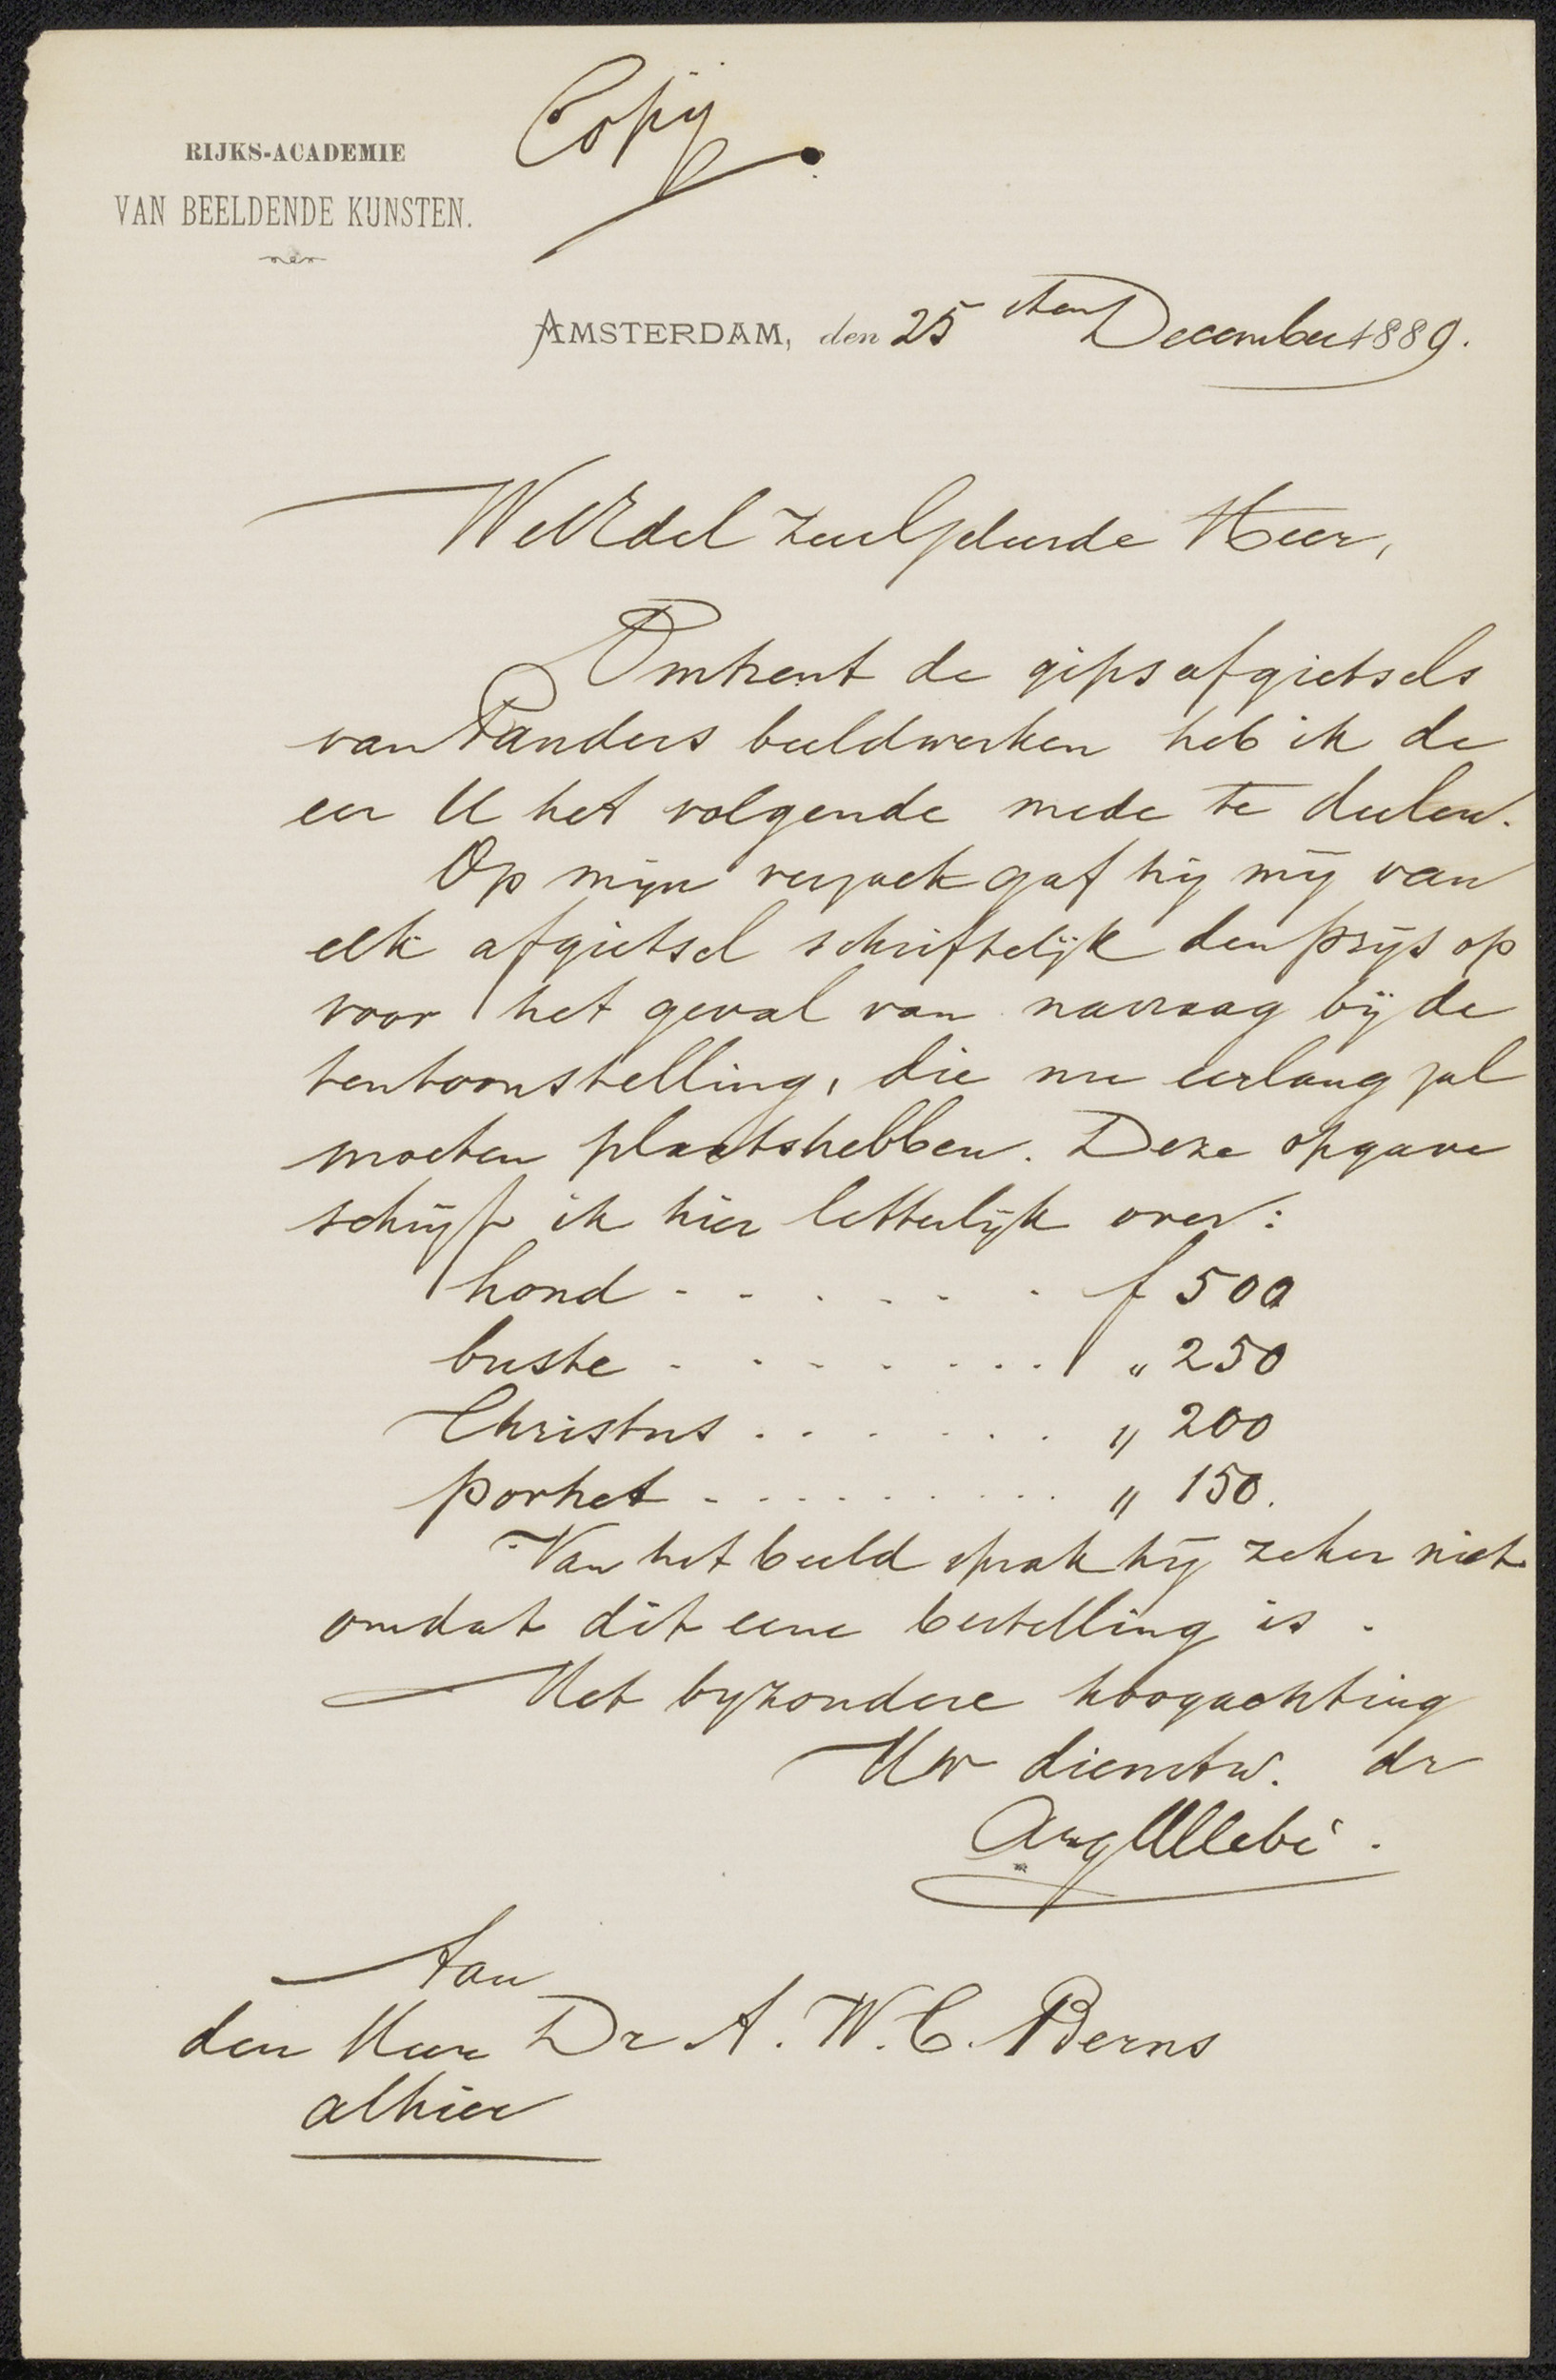 Copij
RIJKS-ACADEMIE
VAN BEELDENDE KUNSTEN.
AMSTERDAM, den 25sten December 1889.
WelEdel zeelgeleerde Heer,
Omtrent de gipsafgietsels
van Panders beeldwerken heb ik de
eer U het volgende mede te deelen.
Op mijn verzoek gaf hij mij van
elk afgietsel schriftelijk den prijs op
voor het geval van navraag bij de
tentoonstelling, die nu eerlang zal
moeten plaatshebben. Deze opgave
schrijf ik hier letterlijk over:
hond . . . . . . . f 500
buste . . . . . . . " 250
Christus . . . . . . " 200
portret . . . . . . . . . " 150.
Van het beeld sprak hij zeker niet
omdat dit eene bestelling is.
Met byzondere hoogachting
Uw dienstw. dr
Aug Allebé.
Aan
den Heer Dr A. W. C. Berns
alhier